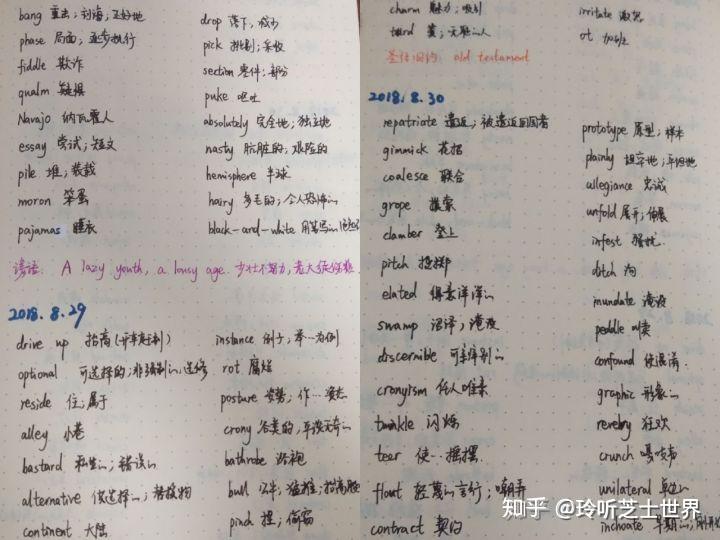 bang 重击；刘海；正好地
phase 局面；逐步执行
fiddle 欺诈
qualm 疑惧
Navajo 纳瓦霍人
essay 尝试；短文
pile 堆；装载
moron 笨蛋
pajamas 睡衣
drop 落下，减少
pick 挑剔；采收
section 零件；部分
puke 呕吐
absolutely 完全地；独立地
nasty 肮脏的；艰险的
hemisphere 半球
hairy 多毛的；令人恐怖的
black-and-white
谚语： A lazy youth, a lousy age. 少壮不努力，老大徒伤悲.
2018.8.29
drive up 抬高
optional 可选择的；非强制的，选修
reside 住；属于
alley 小巷
bastard 私生的；错误的
alternative 供选择的；替换物
continent 大陆
instance 例子；举…为例
rot 腐烂
posture 姿势；作…姿态
crony
bathrobe 浴袍
bull 公牛；猛推；抬高股
pinch 捏；偷窃
charm 魅力；吸引
turd 粪；无赖的人
irritate 激怒
ot 加班
圣经旧约 old testament
2018.8.30
repatriate 遣返；被遣返回国者
gimmick 花招
coalesce 联合
grope 摸索
clamber 登上
pitch 投掷
elated 得意洋洋的
swamp 沼泽；淹没
discernible 可辨别的
cronyism 任人唯亲
twinkle 闪烁
teer 使…摇摆
flout 轻蔑的言行；嘲弄
contract 契约
prototype 原型；样本
plainly 坦率地；平坦地
allegiance 忠诚
unfold 展开；伸展
infest 骚扰
ditch 沟
inundate 淹没
peddle 叫卖
confound 使混淆
graphic 形象的
revelry 狂欢
crunch 嘎吱声
unilateral 单边的
inchoate 早期的；刚开始
知乎 @玲听芝士世界